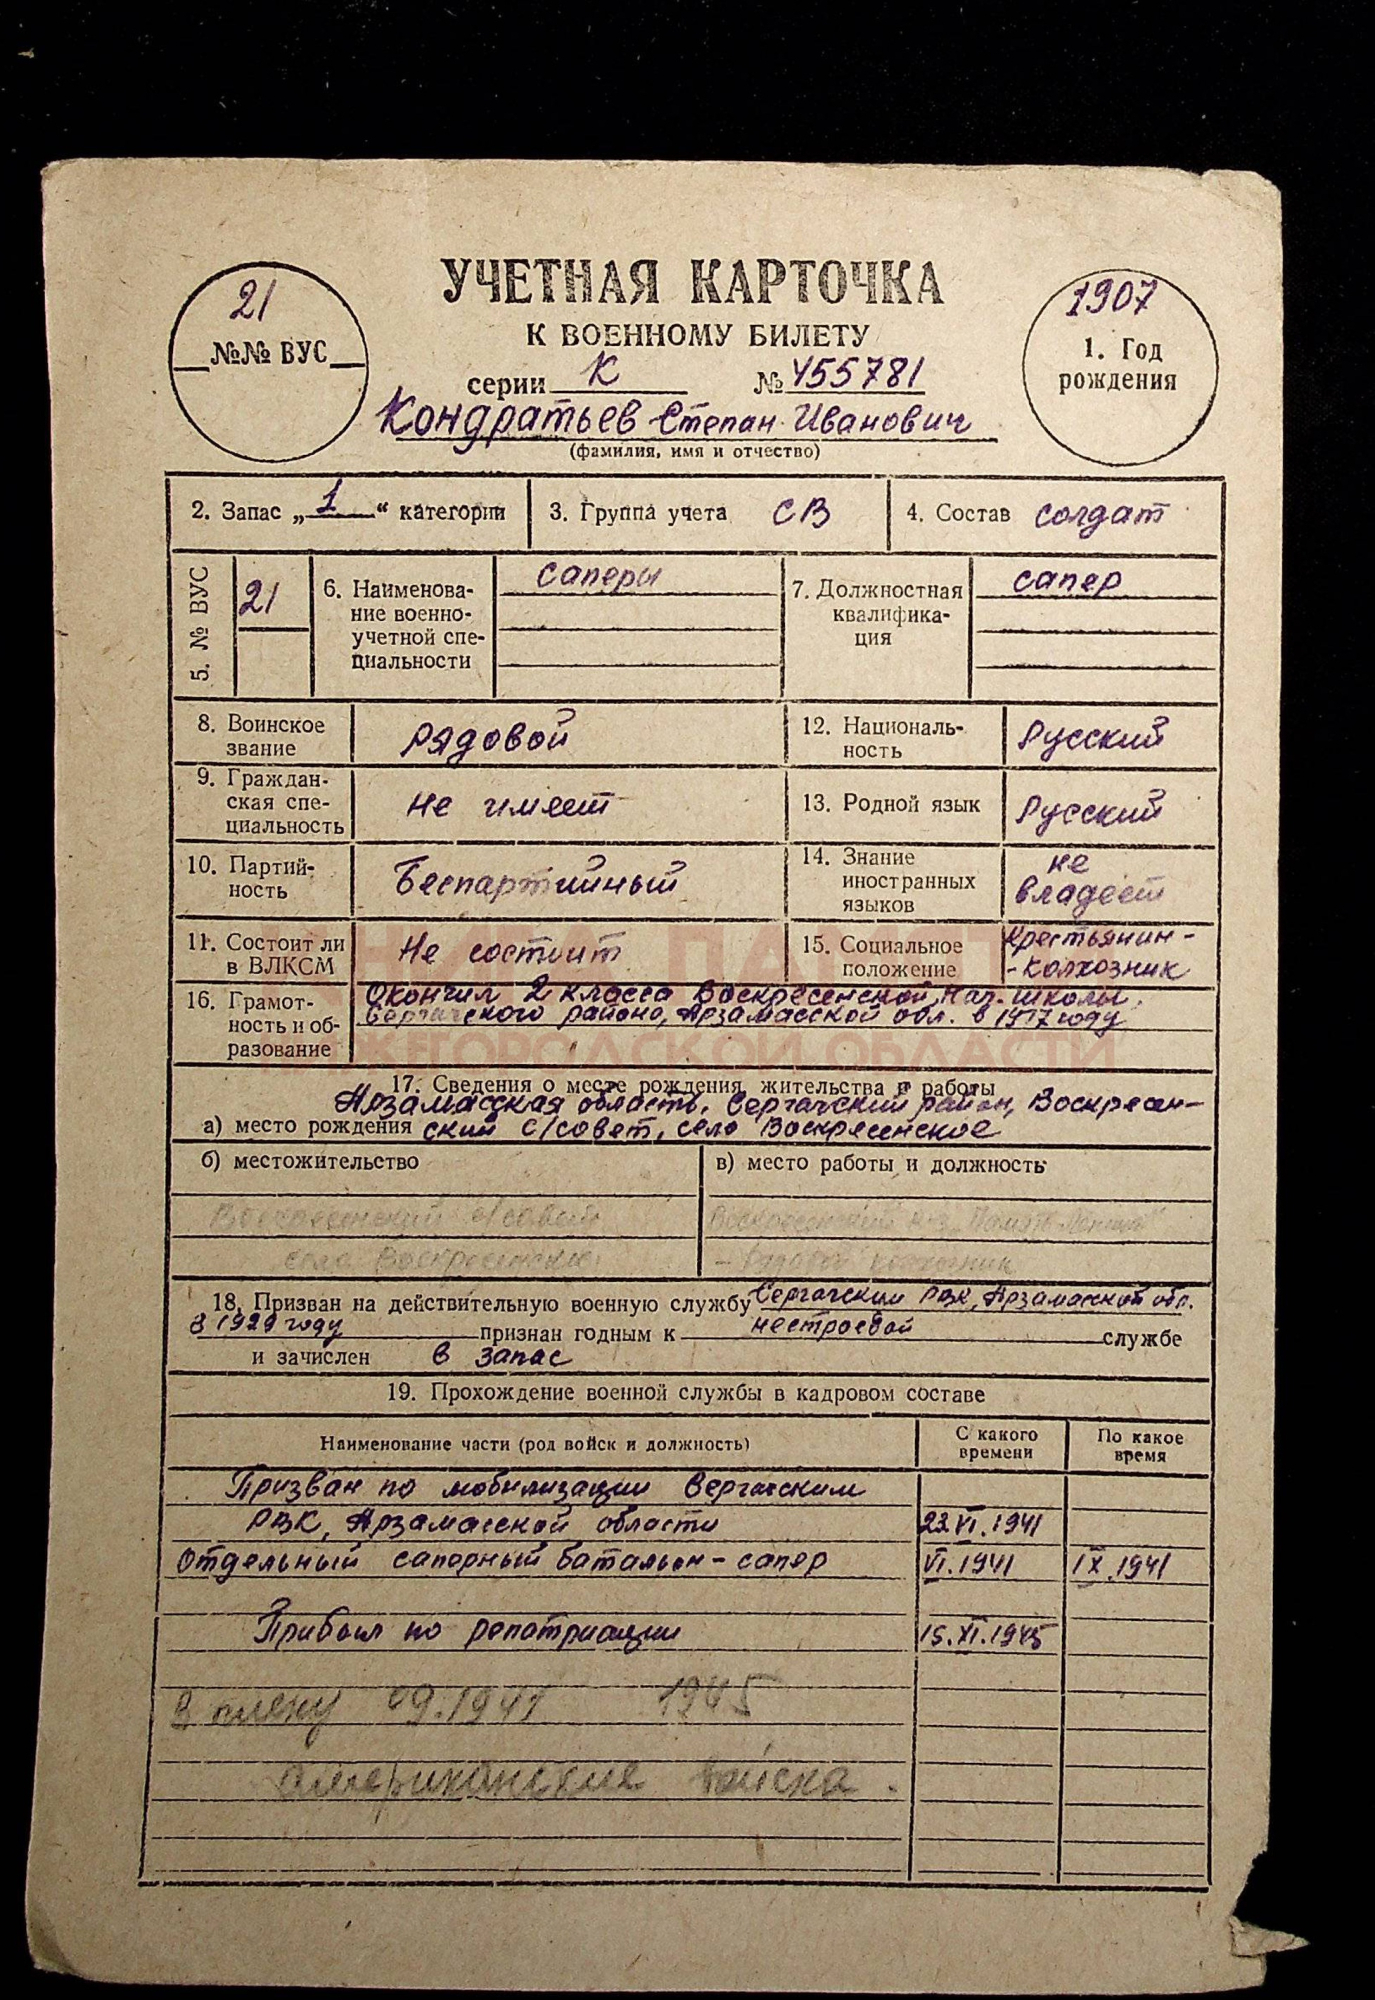 УЧЕТНАЯ КАРТОЧКА
К ВОЕННОМУ БИЛЕТУ
серии К № 455781
21
№№ ВУС
1907
1. Год
рождения
Кондратьев Степан Иванович
(фамилия, имя и отчество)
2. Запас „1“ категории
3. Группа учета СВ
4. Состав солдат
5. № ВУС
21
6. Наименова-
ние военно-
учетной спе-
циальности
саперы
7. Должностная
квалифика-
ция
сапер
8. Воинское
звание
рядовой
12. Националь-
ность
Русский
9. Граждан-
ская спе-
циальность
не имеет
13. Родной язык
Русский
10. Партий-
ность
Беспартийный
14. Знание
иностранных
языков
не
владеет
11. Состоит ли
в ВЛКСМ
Не состоит
15. Социальное
положение
Крестьянин-
-колхозник
16. Грамот-
ность и об-
разование
Окончил 2 класса Воскресенской нач. школы
Сергачского района, Арзамасской обл. в 1917 году
КНИГА ПАМЯТИ
НИЖЕГОРОДСКОЙ ОБЛАСТИ
17. Сведения о месте рождения, жительства и работы
Арзамасская область, Сергачский район, Воскресен-
а) место рождения ский с/совет, село Воскресенское
б) местожительство
Воскресенский с/совет
село Воскресенское
в) место работы и должность
Воскресенский к-з „Память Ленина“
- Рядовой колхозник
18. Призван на действительную военную службу Сергачским РВК, Арзамасской обл.
в 1929 году признан годным к нестроевой службе
и зачислен в запас
19. Прохождение военной службы в кадровом составе
Наименование части (род войск и должность)
С какого
времени
По какое
время
Призван по мобилизации Сергачским
РВК, Арзамасской области 23.VI.1941
Отдельный саперный батальон - сапер VI.1941 IX.1941
Прибыл по репатриации 15.XI.1945
В плену 09.1941 1945
американские войска.